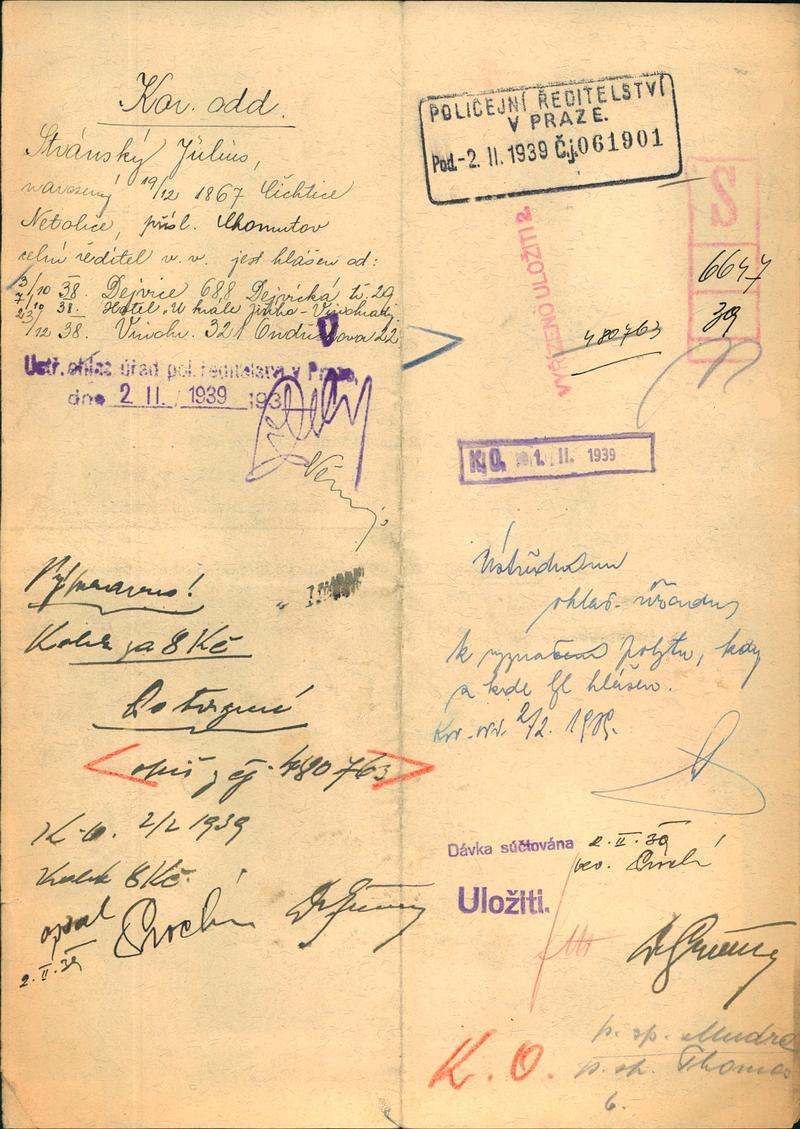 Kon. odd.
Stránský Július,
narozený 19/12 1867 Čichtice
Netolice, přísl. Chomutov
celní ředitel v. v. jest hlášen od:
3/10 38. Dejvice 688 Dejvická tř. 29
7/10 38. Hotel „U krále Jiřího - Vinohrady
23/12 38. Vinohr. 321 Ondříčkova 22
Ústř. ohlaš. úřad pol. ředitelství v Praze,
dne 2 II. 1939 193
Vypraveno!
Kolek za 8 Kč
opis z čj. 480763
K.O. 2/2 1939
Kolek 8 Kč.
opsal
2.II.39
POLICEJNÍ ŘEDITELSTVÍ
V PRAZE.
Pod. -2. II. 1939 Č.j. 061901
S
6647
39
VYŘÍZENO ULOŽITI 2.
480763
K.O. 1. II. 1939
Ústřednímu
ohlaš. úřadu
k vyznačení pobytu, kdy
a kde byl hlášen.
2/2. 1939.
Dávka súčtována 2.II.39
Uložiti.
K. O.
p. sp. Mudra
p. sp. Thomas
6.